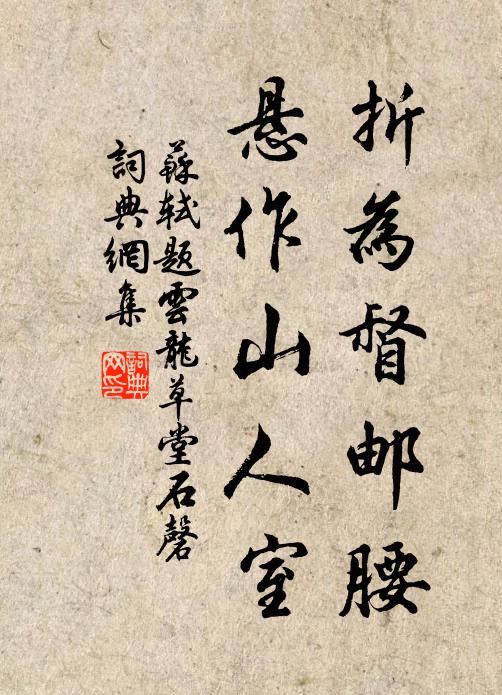 折為督邮腰
悬作山人室
蘇軾题雲龍草堂石磬
詞典網集
詞典網印